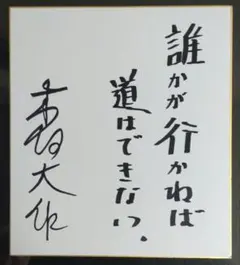 誰かが行かねば
道はできない.
大作